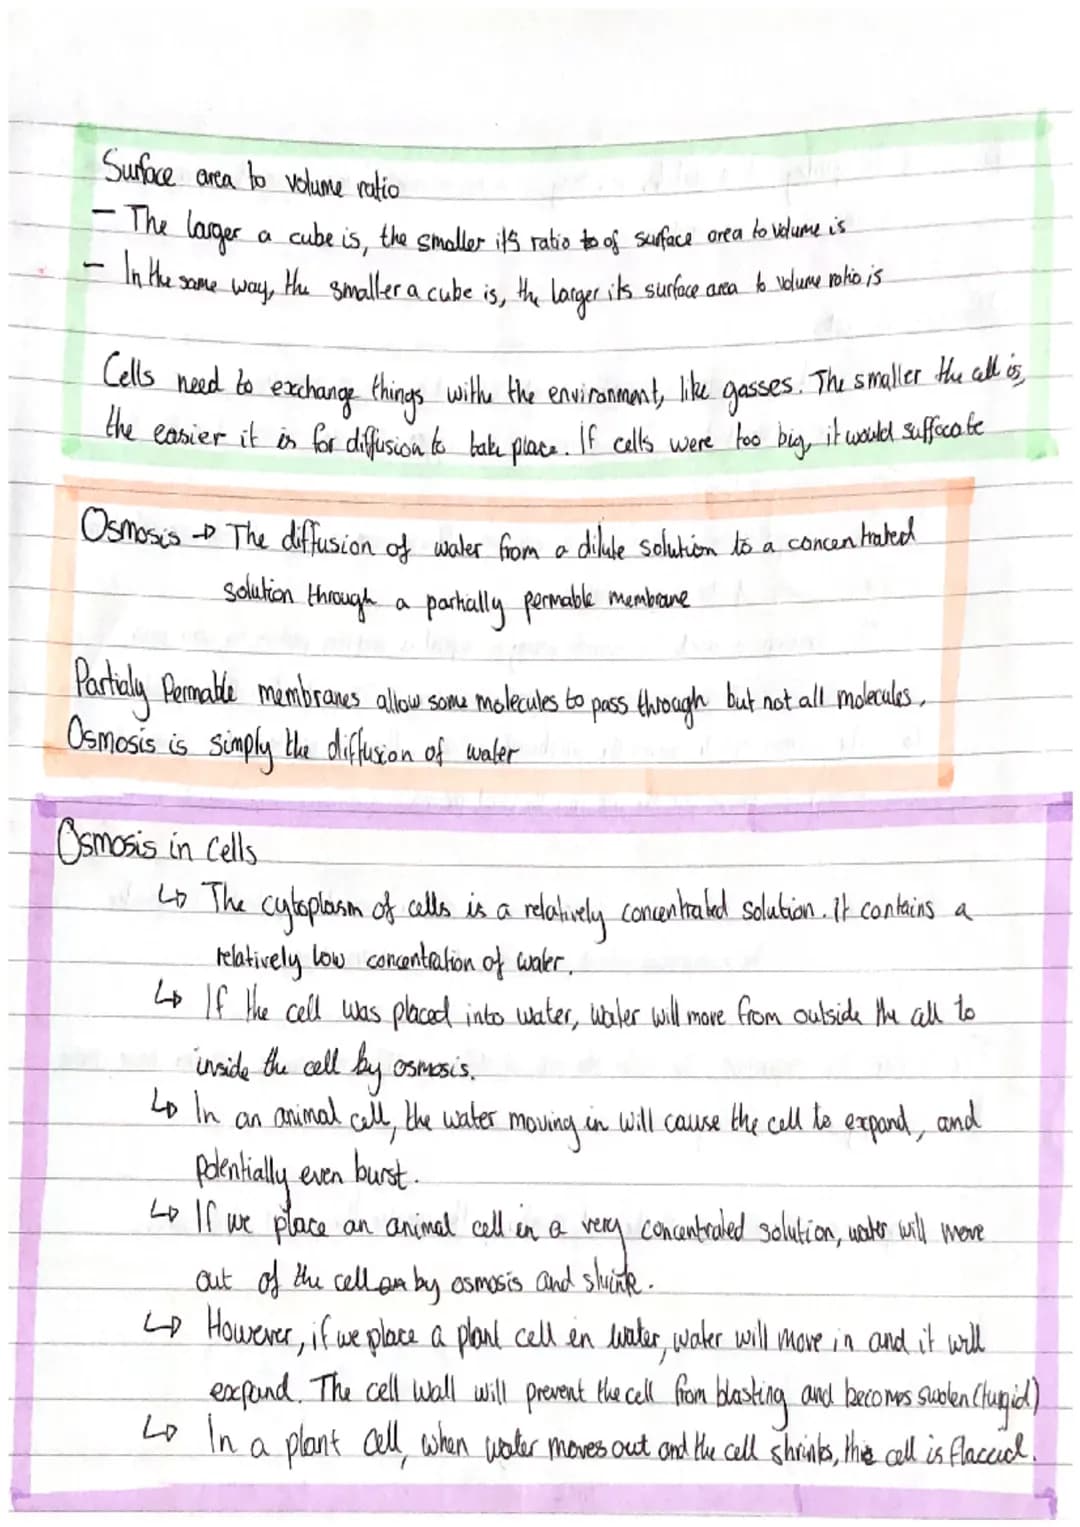 Surface area to volume ratio
- The larger a cube is, the smaller its ratio to of surface area to volume is
- In the same way, the smaller a cube is, the larger its surface area to volume ratio is
Cells need to exchange things withe the environment, like gasses. The smaller the cell is,
the easier it is for diffusion to take place. If cells were too big, it would suffocate
Osmosis → The diffusion of water from a dilute solution to a concentrated
solution through a partially permable membrane
Partialy Permable membranes allow some molecules to pass through but not all molecules.
Osmosis is simply the diffusion of water
Osmosis in Cells
↳ The cytoplasm of cells is a relatively concentrated solution. It contains a
relatively low concentration of water.
↳ If the cell was placed into water, water will move from outside the cell to
inside the cell by osmosis.
↳ In an animal cell, the water moving in will cause the cell to expand, and
potentially even burst.
↳ If we place an animal cell in a very concentrated solution, water will move
out of the cell by osmosis and shrink.
↳ However, if we place a plant cell in water, water will move in and it will
expand. The cell wall will prevent the cell from blasting and becomes swolen (tugid)
↳ In a plant cell, when water moves out and the cell shrinks, the cell is flaccid.